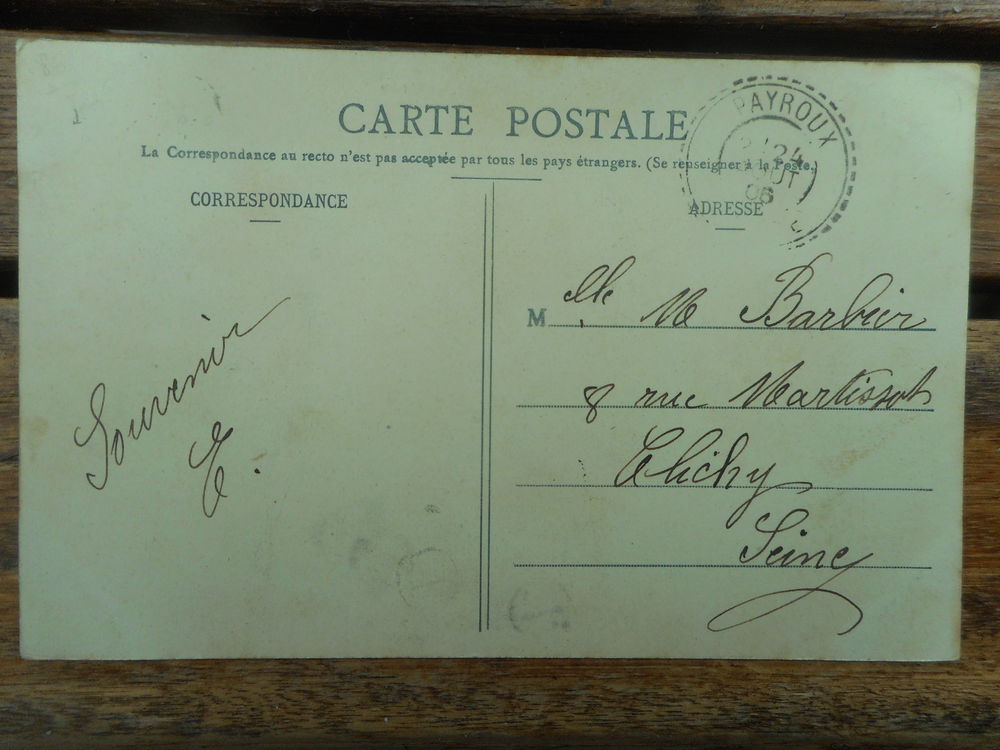 CARTE POSTALE
La Correspondance au recto n'est pas acceptée par tous les pays étrangers. (Se renseigner à la Poste.)
CORRESPONDANCE
ADRESSE
PAYROUX
24
AOUT
06
Souvenir
E.
Melle M Barbier
8 rue Martissot
Clichy
Seine